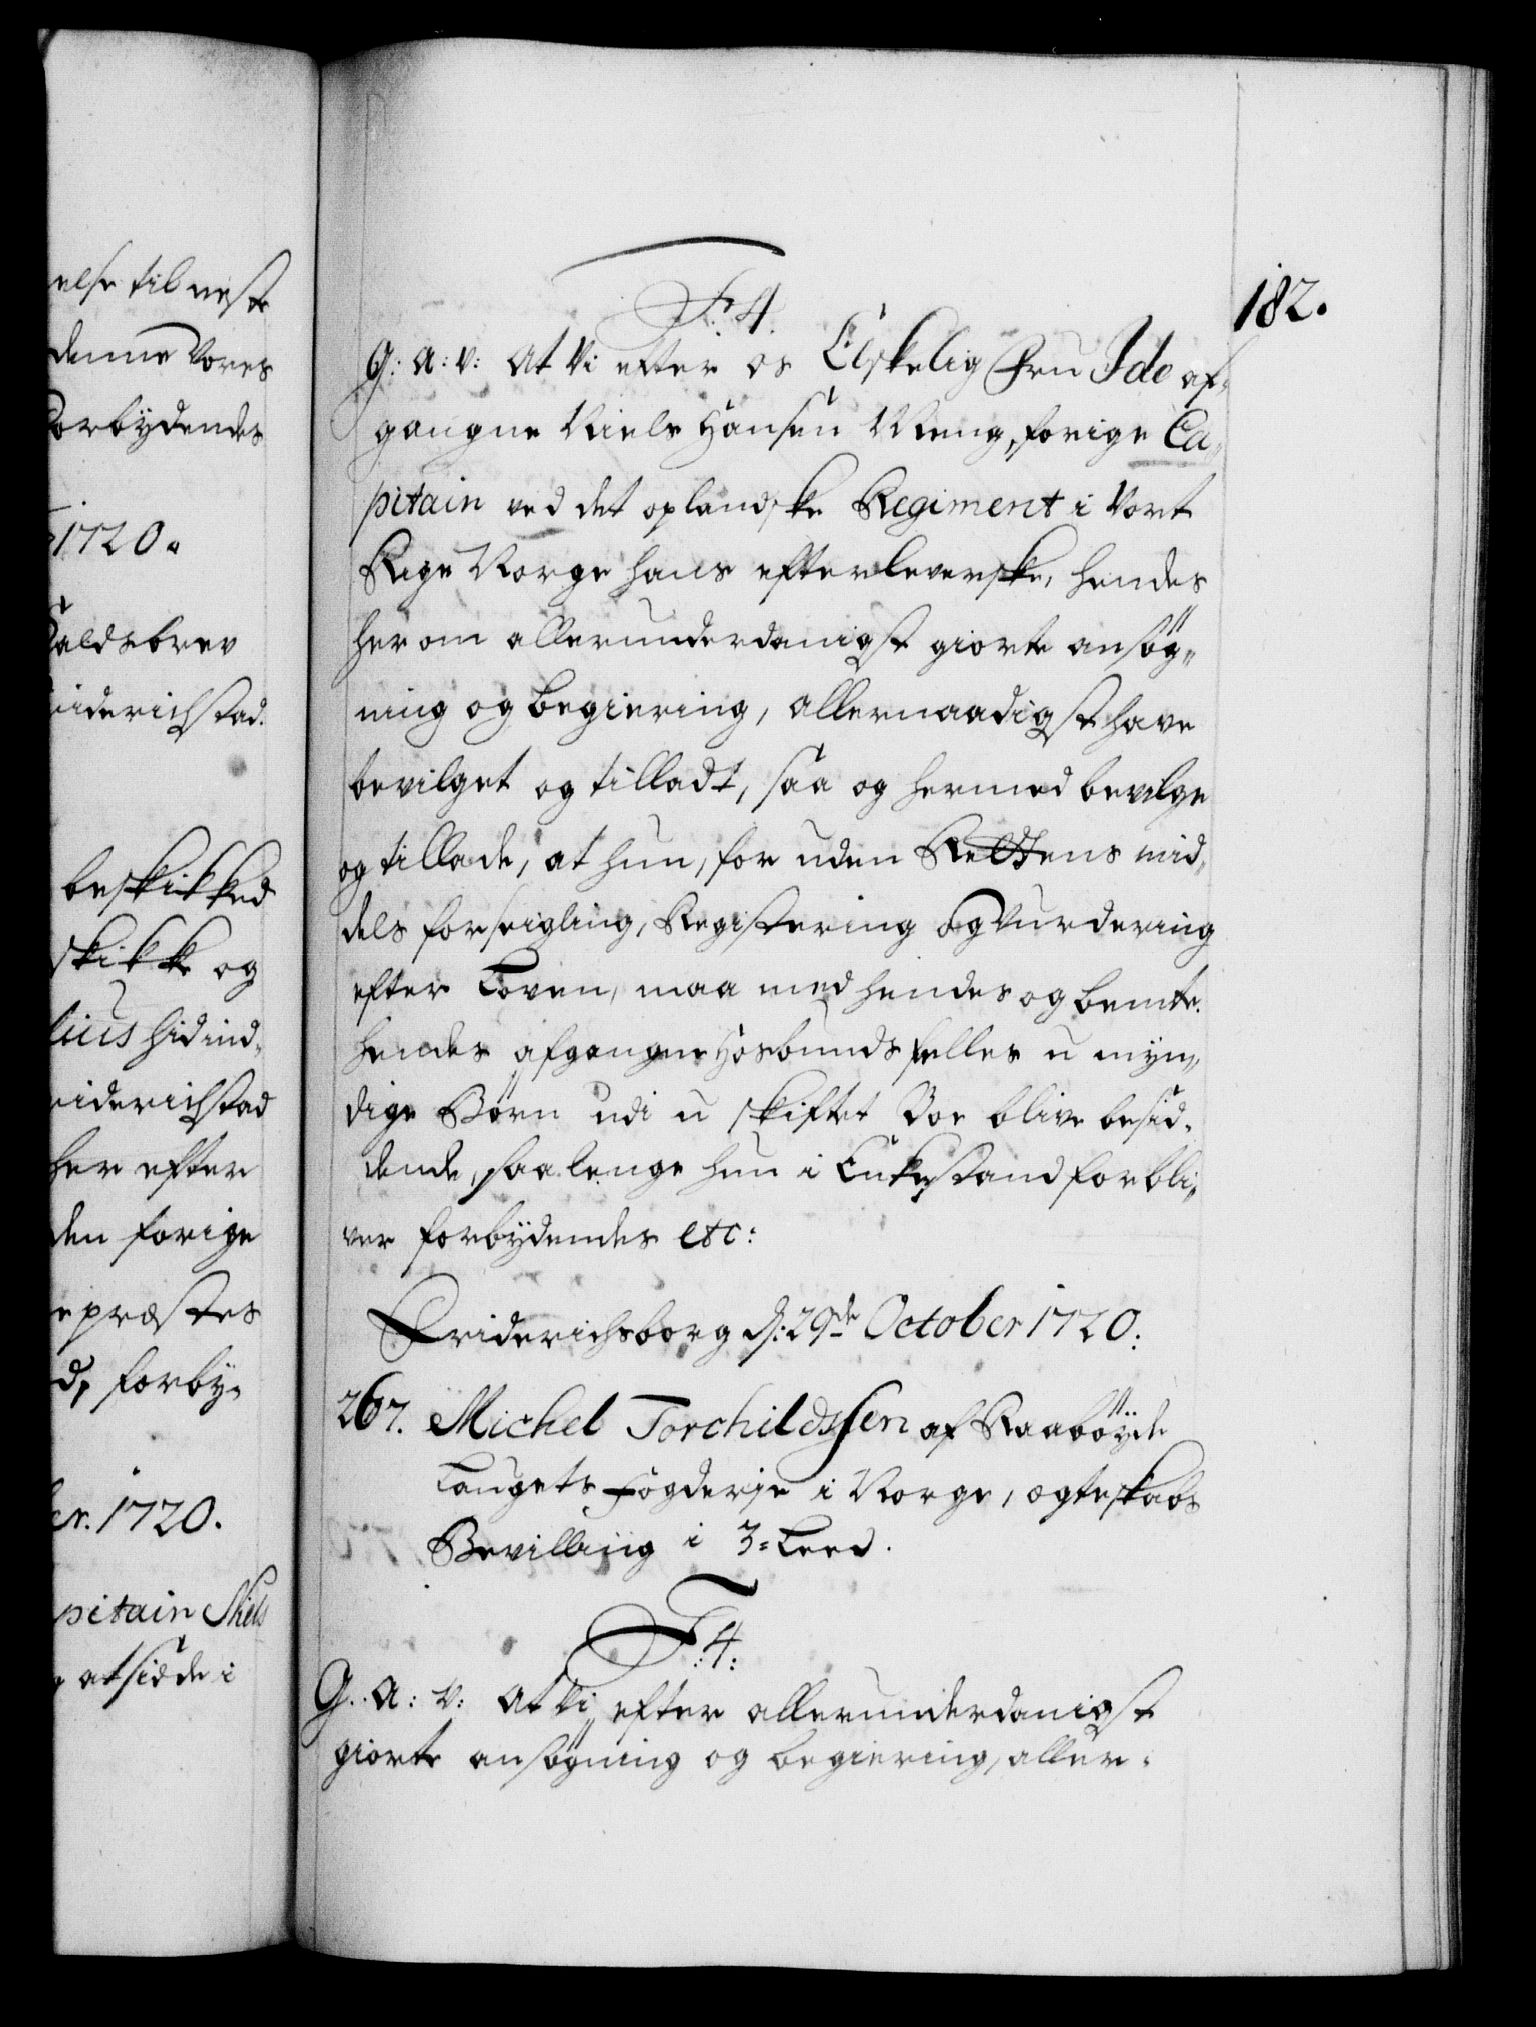 else til neste
denne Vores
forbydendes
1720.
Caldsbrev
riderichstad.
beskikked
skikke og
lius hid ind-
riderichstad
her efter
den forige
e præstes
d, forby-
er. 1720.
pitain Niels
at sidde i
182.
F:4.
G: A: V: At Vi efter os Elskelig Fru Ide af-
gangne Niels Hansen Meng, forige Ca-
pitain ved det oplandske Regiment i Vort
Rige Norge hans efterleverske, hendes
herom allerunderdanigst giorte ansøg-
ning og begiering, allernaadigst have
bevilget og tilladt, saa og hermed bevilge
og tillade, at hun, for uden Rettens mid-
dels forseigling, Registering og Vurdering
efter Loven, maa med hendes og bemte.
hendes afgangne Hosbonds felles u myn-
dige Børn udi u skiftet Boe blive besid-
dende, saalenge hun i Enkestand forbli-
ver forbydendes etc:
Friderichsborg d: 29de October 1720.
267. Michel Torchildssen af Raabøyde
Laugets Fogderje i Norge, ægteskabs
Bevilling i 3= Leed.
F:4:
G. A: V: At Vi efter allerunderdanigst
giorte ansøgning og begiering, aller-